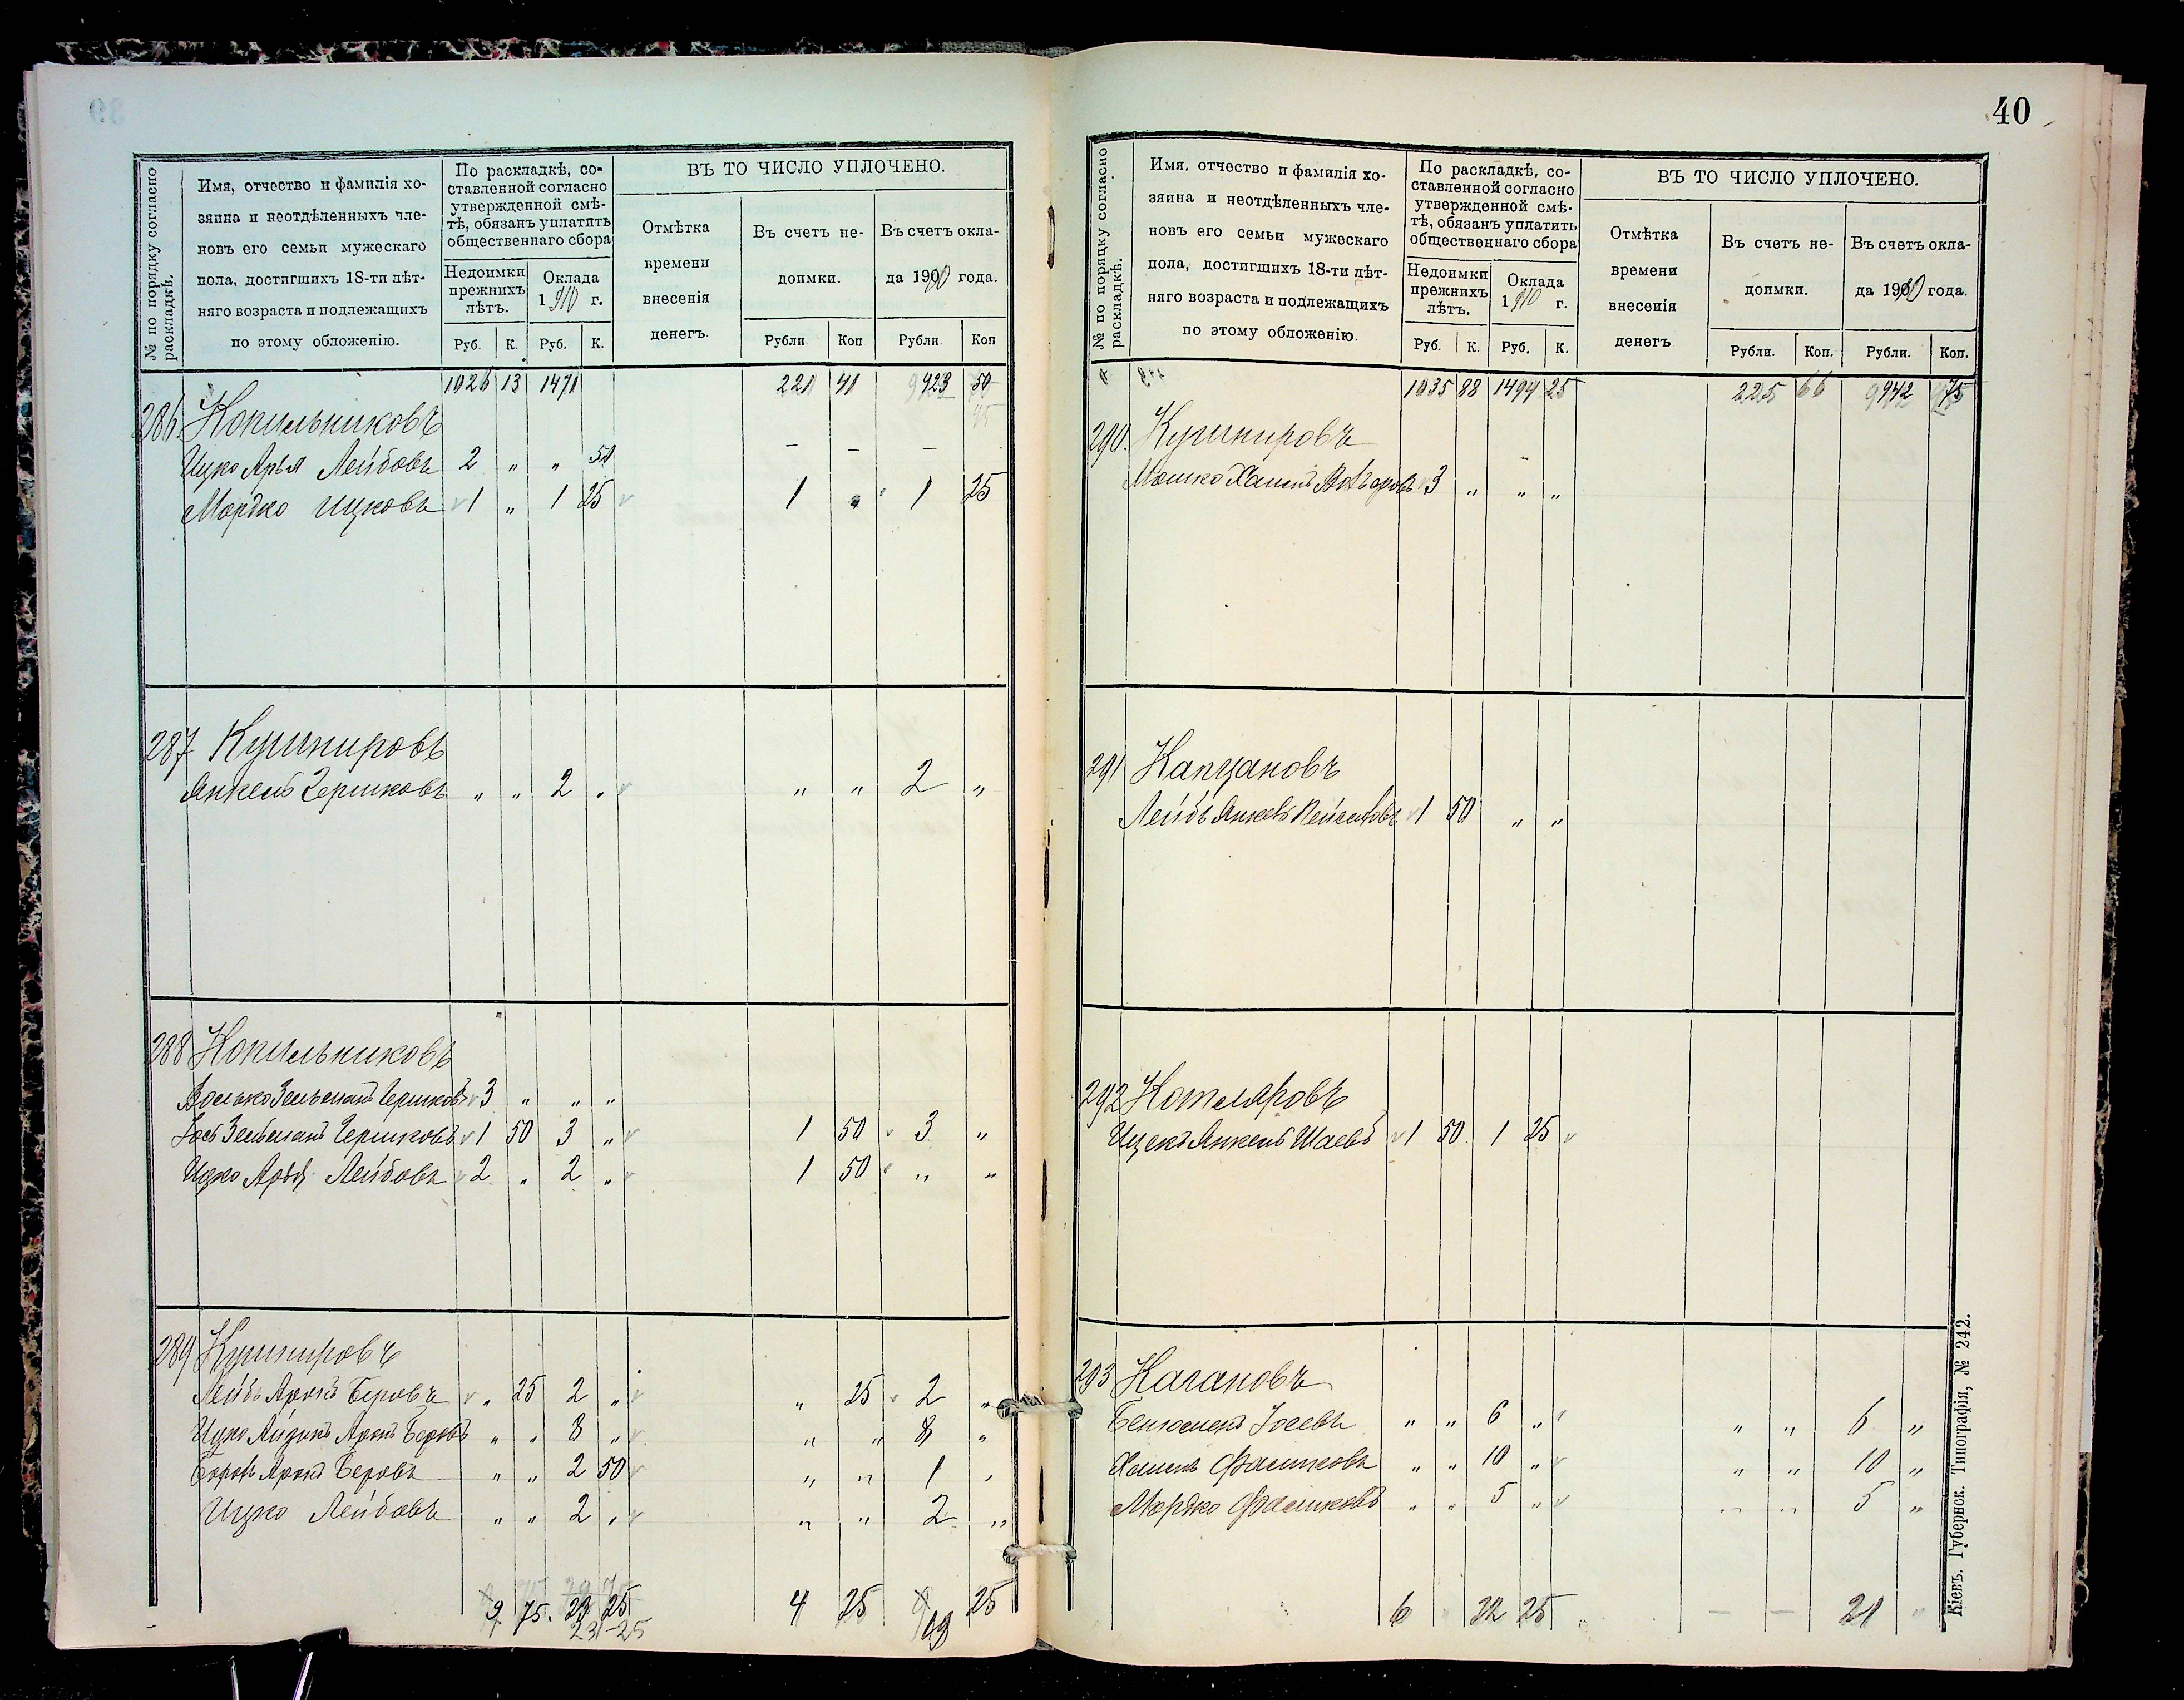 № по порядку согласно раскладкѣ.
Имя, отчество и фамилія хо-
зяина и неотдѣленныхъ чле-
новъ его семьи мужескаго
пола, достигшихъ 18-ти лѣт-
няго возраста и подлежащихъ
по этому обложенію.
По раскладкѣ, со-
ставленной согласно
утвержденной смѣ-
тѣ, обязанъ уплатить
общественнаго сбора
Недоимки
прежнихъ
лѣтъ.
Оклада
1910 г.
Руб. К. Руб. К.
ВЪ ТО ЧИСЛО УПЛОЧЕНО.
Отмѣтка
времени
внесенія
денегъ.
Въ счетъ не-
доимки.
Въ счетъ окла-
да 1910 года.
Рубли Коп Рубли Коп
13 1471 221 41
286. Копильниковъ
Ицко Арья Лейбовъ 2 „ „ 50 – – –
Мордко Ицковъ 1 „ 1 25 1 „ 1 25
287 Кушнировъ
Янкель Гершковъ „ „ 2 „ „ „ 2 „
288 Копильниковъ
Зельманъ Гершковъ 3 „ „ „
Іось Зельманъ Гершковъ 1 50 3 „ 1 50 3 „
Ицко Арья Лейбовъ 2 „ 2 „ 1 50 „ „
289 Кушнировъ
Лейбъ Аронъ Беровъ „ 25 2 „ „ 25 2 „
Ицко Айзикъ Аронъ Беровъ „ „ 8 „ „ „ 8 „
Аронъ Беровъ „ „ 2 50 „ „ 1 „
Ицко Лейбовъ „ „ 2 „ „ „ 2 „
9 75. 23 25 4 25 19 25
23-25
40
№ по порядку согласно раскладкѣ.
Имя, отчество и фамилія хо-
зяина и неотдѣленныхъ чле-
новъ его семьи мужескаго
пола, достигшихъ 18-ти лѣт-
няго возраста и подлежащихъ
по этому обложенію.
По раскладкѣ, со-
ставленной согласно
утвержденной смѣ-
тѣ, обязанъ уплатить
общественнаго сбора
Недоимки
прежнихъ
лѣтъ.
Оклада
1910 г.
Руб. К. Руб. К.
ВЪ ТО ЧИСЛО УПЛОЧЕНО.
Отмѣтка
времени
внесенія
денегъ.
Въ счетъ не-
доимки.
Въ счетъ окла-
да 1910 года.
Рубли. Коп. Рубли. Коп.
88 1494 25 225 66 942 75
290. Кушнировъ
Мошко Хаимъ 3 „ „ „
291 Капцановъ
Лейбъ Янкель Пейсаховъ 1 50 „ „
292 Котляровъ
Ицекъ Янкель Шаевъ 1 50 1 25
293 Кагановъ
Беньюменъ Іосевъ „ „ 6 „ „ „ 6 „
„ „ 10 „ „ „ 10 „
Мордко „ „ 5 „ „ „ 5 „
6 22 25 – – 21 „
Кіевъ. Губернск. Типографія, № 242.